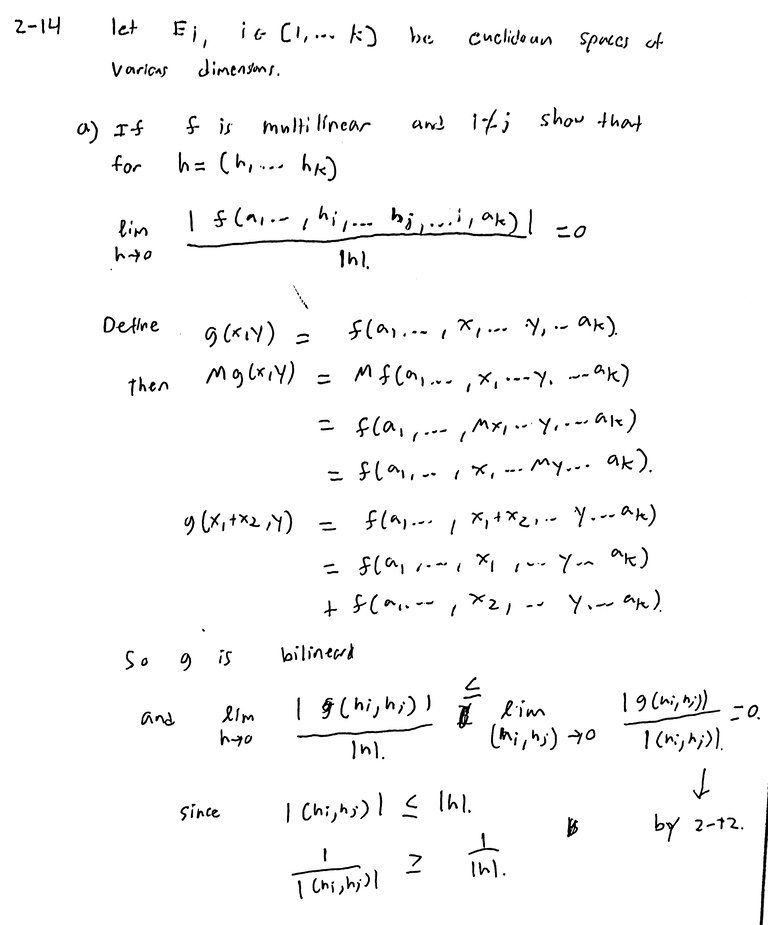 2-14 let Ei, i ∈ [1,... k] be euclidean spaces of
various dimensions.
a) If f is multilinear and i≠j show that
for h = (h,... hk)
lim h→0 | f(a,.. , hi,... hj,...i, ak)| / |h|. = 0
Define g(x,y) = f(a,... , x,... y,.. ak).
then Mg(x,y) = Mf(a,... , x,...y, ...ak)
= f(a,,... , Mx,.. y,...ak)
= f(a,,.. , x,...My... ak).
g(x1+x2,y) = f(a,... , x1+x2,.. y...ak)
= f(a, ,..., x1 ,... y... ak)
+ f(a,..., x2, ... y... ak).
So g is bilineard
and lim h→0 | g(hi,hj)| / |h|. ≤ lim (hi,hj)→0 |g(hi,hj)| / |(hi,hj)|. = 0.
↓
since |(hi,hj)| ≤ |h|. by 2-12.
1 / |(hi,hj)| ≥ 1 / |h|.